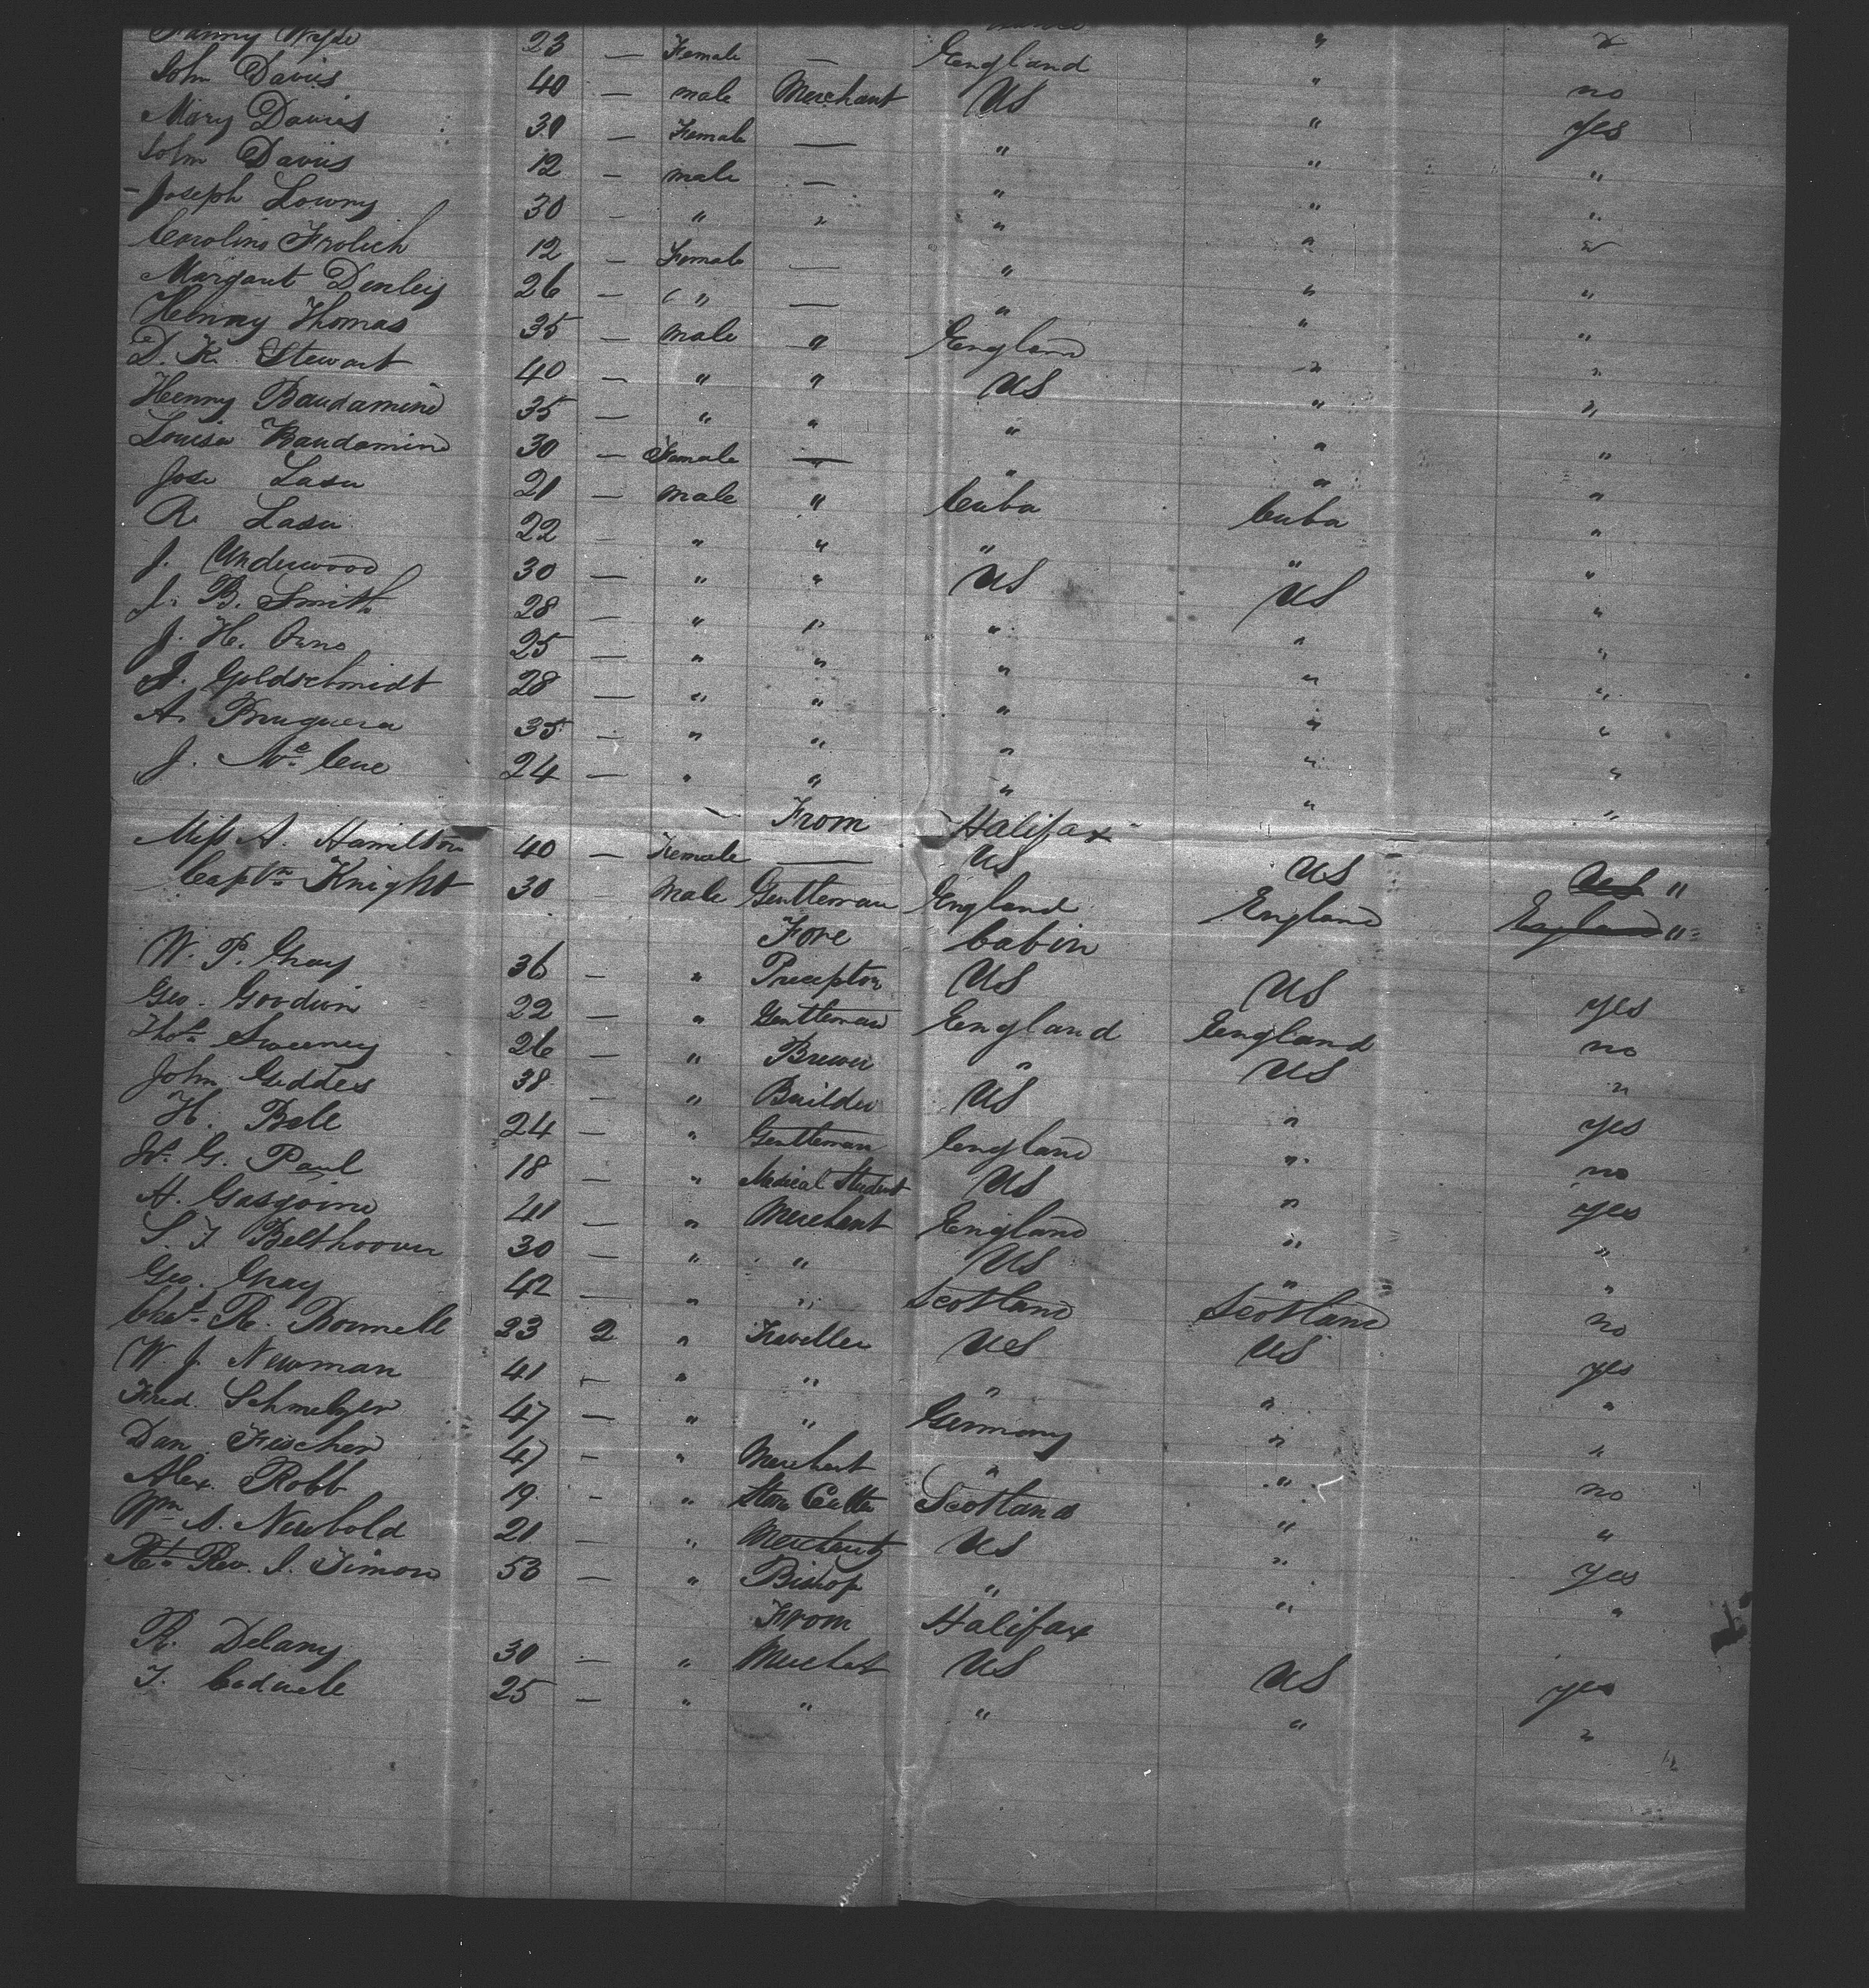 Fanny Wylde 23 — Female — England " "
John Davis 40 — male Merchant US " no
Mary Davis 30 — Female — " " yes
John Davis 12 — male — " " "
Joseph Lowry 30 — " " " " "
Caroline Frolich 12 — Female — " " "
Margaret Denley 26 — " — " " "
Henry Thomas 35 — male " England " "
D. K. Stewart 40 — " " US " "
Henry Baudamine 35 — " " " " "
Louisa Baudamine 30 — Female — " " "
Jose Lasu 21 — male " Cuba Cuba "
R. Lasu 22 — " " " " "
J. Underwood 30 — " " US US "
J. B. Smith 28 — " " " " "
J. H. Orne 25 — " " " " "
J. Goldschmidt 28 — " " " " "
A. Bruguera 35 — " " " " "
J. Mc Cue 24 — " " " " "
From Halifax
Miss A. Hamilton 40 — Female — US US US "
Captn Knight 30 male Gentleman England England England "
Fore Cabin
W. P. Gray 36 — " Preceptor US US yes
Geo. Goodwin 22 — " Gentleman England England no
Thos Sweeney 26 — " Brewer " US "
John Geddes 38 — " Builder US " yes
H. Bell 24 — " Gentleman England " no
W. G. Paul 18 — " Medical Student US " yes
H. Gasgoine 41 — " Merchant England " "
S. J Belthoover 30 — " " US " "
Geo. Gray 42 — " " Scotland Scotland no
Chas. R. Bonnell 23 2 " Traveller US US yes
W. J. Newman 41 — " " " " "
Fred. Schmelzer 47 — " " Germany " "
Dan. Fischer 47 — " Merchant " " no
Alex. Robb 19 — " Stone Cutter Scotland " "
Wm A. Newbold 21 — " Merchant US " yes
Rt. Rev. J. Timon 53 — " Bishop " " "
From Halifax
R. Delany 30 — " Merchant US US yes
T. 25 — " " " " "